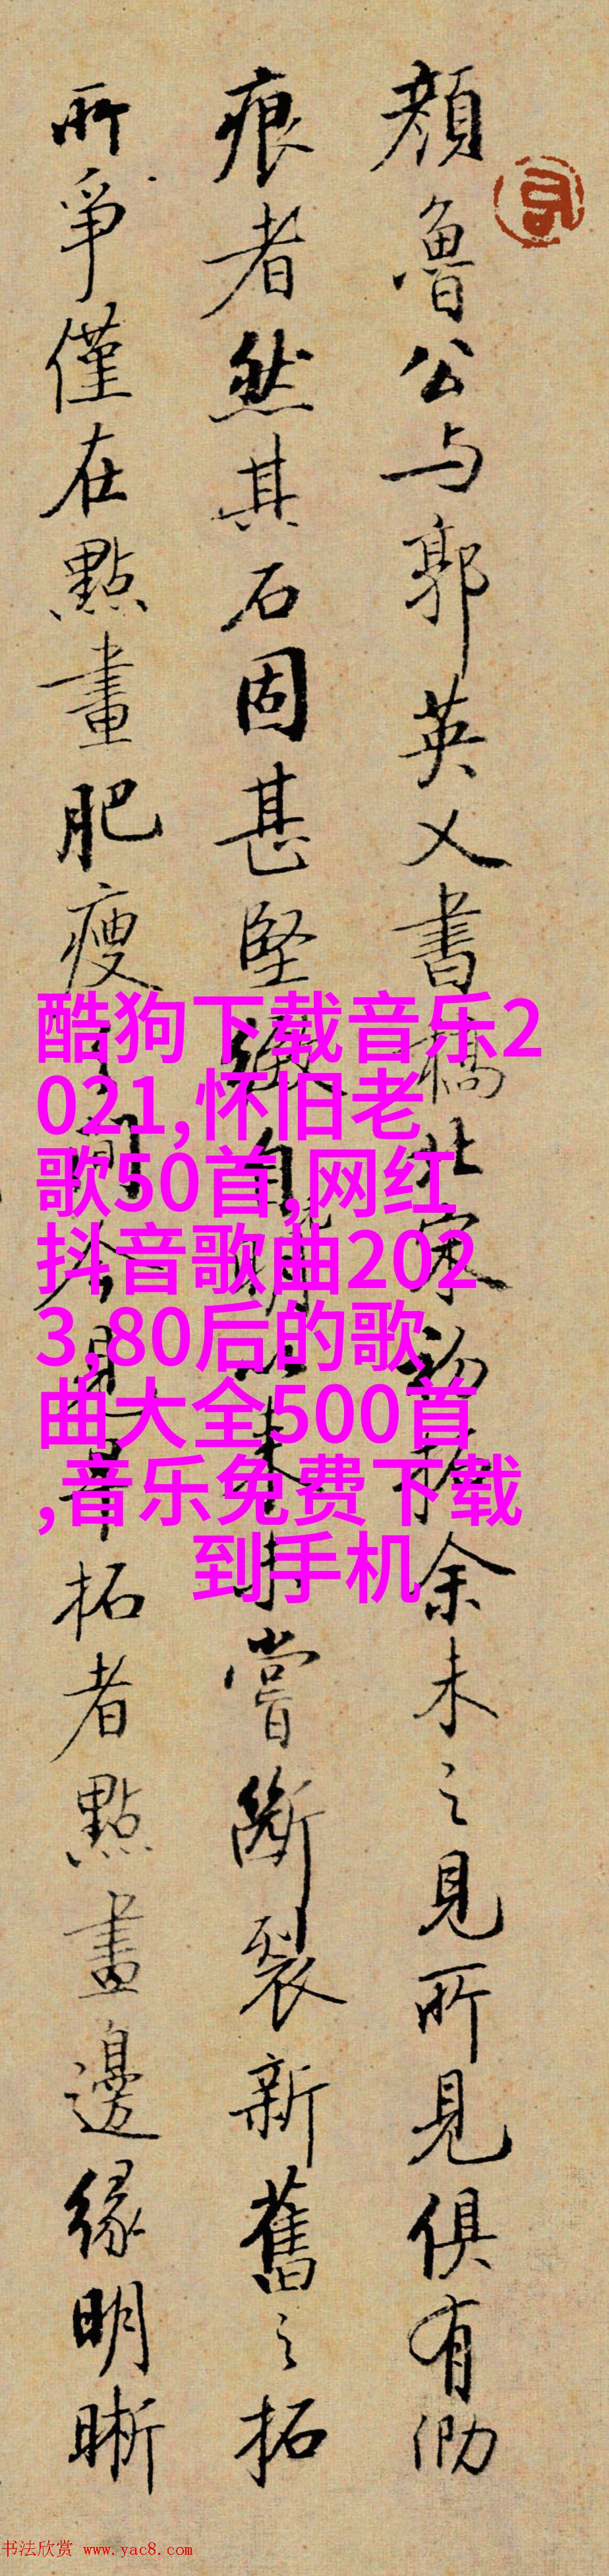 顔魯公与郭英乂書稿北宋初拓余未之見所見俱有泐
痕者然其石固甚堅緻自明以来未嘗斷裂新舊之拓
所爭僅在點畫肥瘦之間今見早拓者點畫邊緣明晰
酷狗下载音乐2
021,怀旧老
歌50首,网红
抖音歌曲202
3,80后的歌
曲大全500首
,音乐免费下载
到手机
书法欣赏 www.yac8.com